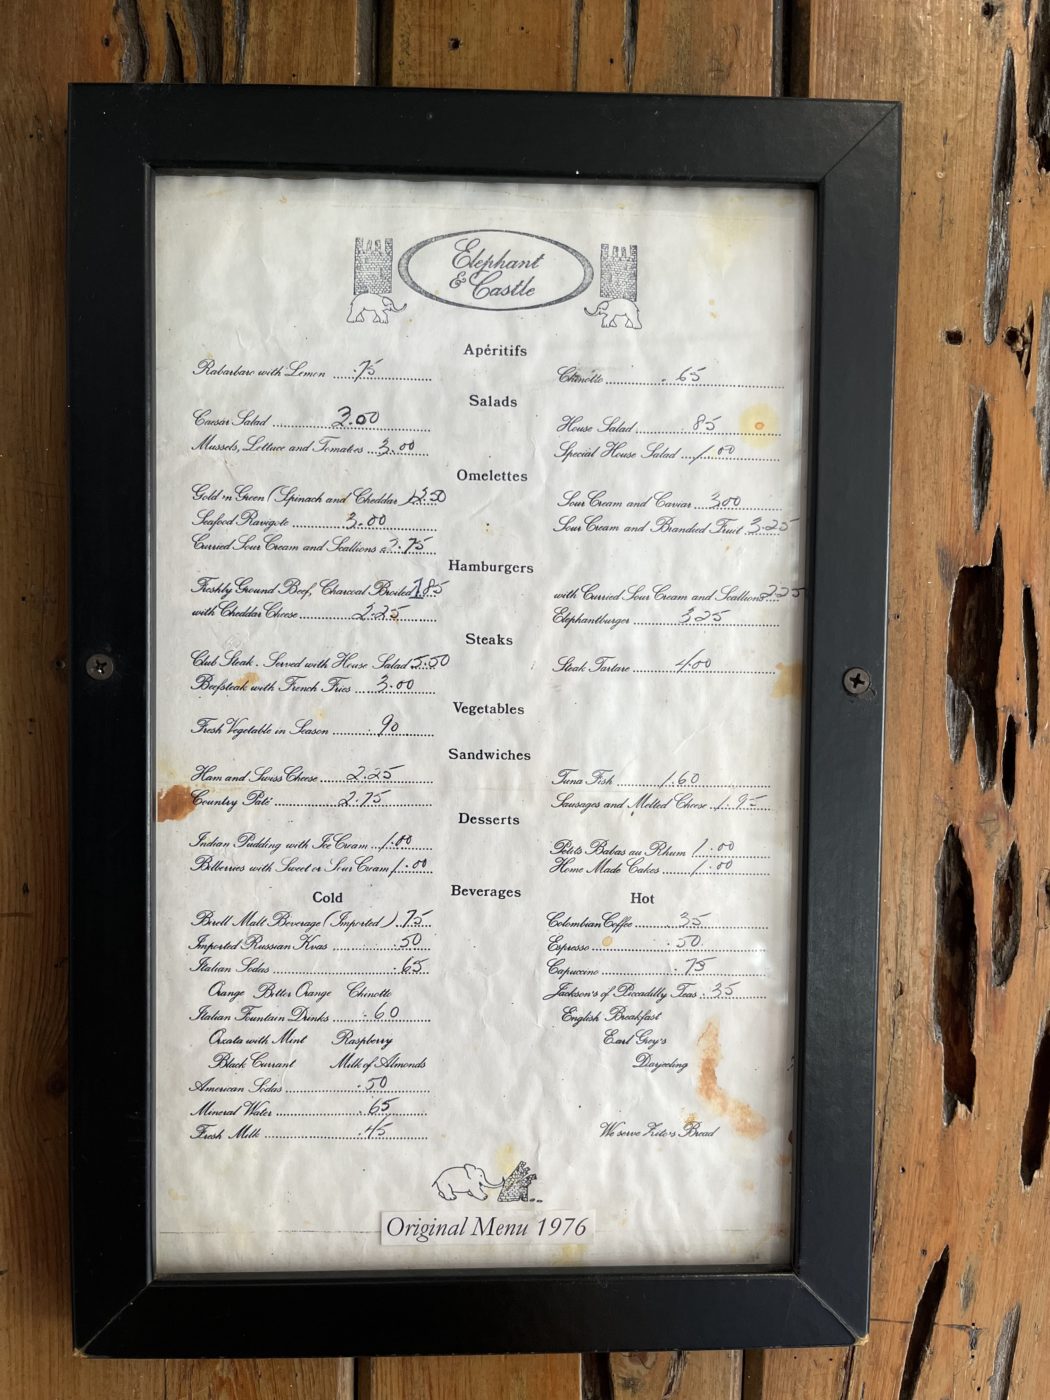 Elephant
& Castle
Apéritifs
Rabarbaro with Lemon .75
Chinotto .65
Salads
Caesar Salad 3.00
House Salad 85
Mussels, Lettuce and Tomatoes 3.00
Special House Salad 1.00
Omelettes
Gold 'n Green (Spinach and Cheddar)
Sour Cream and Caviar 3.00
Seafood Ravigote 3.00
Sour Cream and Brandied Fruit 3.25
Curried Sour Cream and Scallions 2.75
Hamburgers
Freshly Ground Beef, Charcoal Broiled 1.85
with Curried Sour Cream and Scallions 2.25
with Cheddar Cheese 2.25
Elephantburger 3.25
Steaks
Club Steak. Served with House Salad 5.50
Steak Tartare 4.00
Beefsteak with French Fries 3.00
Vegetables
Fresh Vegetable in Season .90
Sandwiches
Ham and Swiss Cheese 2.25
Tuna Fish 1.60
Country Pâté 2.75
Sausages and Melted Cheese 1.95
Desserts
Indian Pudding with Ice Cream 1.00
Petits Babas au Rhum 1.00
Bilberries with Sweet or Sour Cream 1.00
Home Made Cakes 1.00
Beverages
Cold
Hot
Birell Malt Beverage (Imported) .75
Colombian Coffee .35
Imported Russian Kvas .50
Espresso .50
Italian Sodas .65
Capuccino .75
Orange Bitter Orange Chinotto
Jackson's of Piccadilly Teas .35
Italian Fountain Drinks .60
English Breakfast
Orzata with Mint Raspberry
Earl Grey's
Black Currant Milk of Almonds
Darjeeling
American Sodas .50
Mineral Water .65
Fresh Milk .45
We serve Zito's Bread
Original Menu 1976